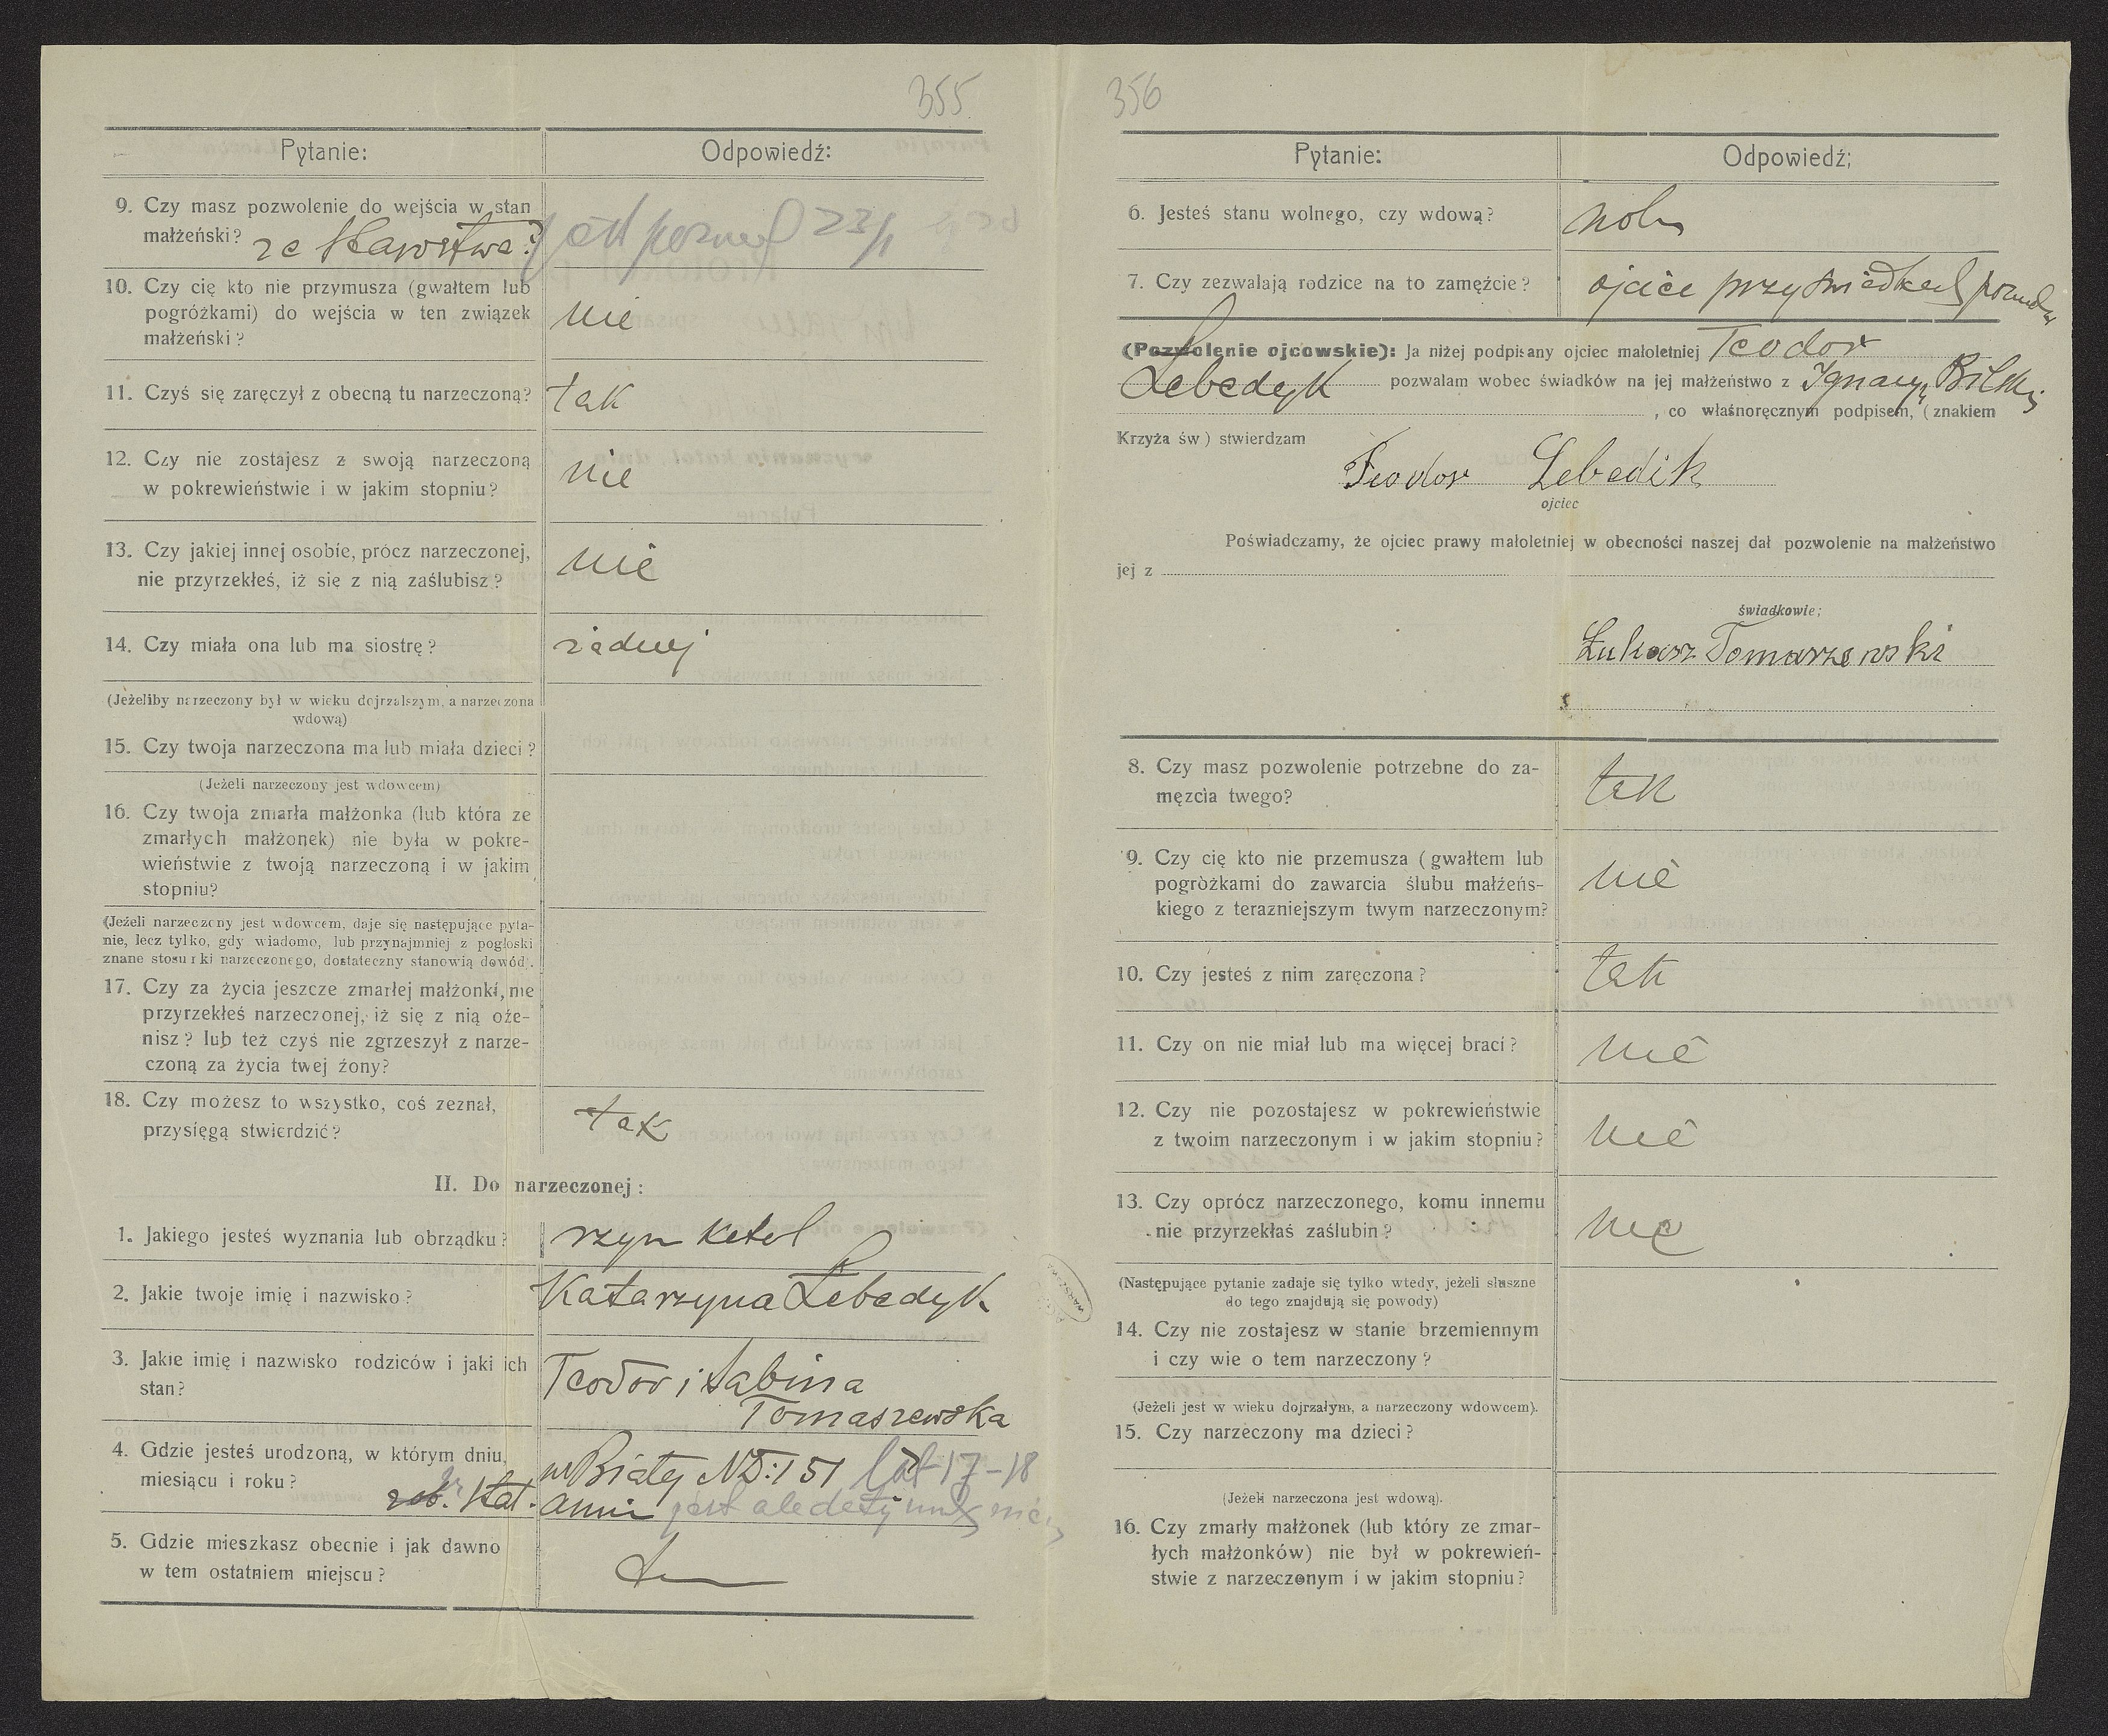 355
Pytanie:
Odpowiedź:
9. Czy masz pozwolenie do wejścia w stan
małżeński? ze Starostwa?
23/1
10. Czy cię kto nie przymusza (gwałtem lub
pogróżkami) do wejścia w ten związek
małżeński?
nie
11. Czyś się zaręczył z obecną tu narzeczoną?
tak
12. Czy nie zostajesz z swoją narzeczoną
w pokrewieństwie i w jakim stopniu?
nie
13. Czy jakiej innej osobie, prócz narzeczonej,
nie przyrzekłeś, iż się z nią zaślubisz?
nie
14. Czy miała ona lub ma siostrę?
żadnej
(Jeżeliby narzeczony był w wieku dojrzalszym, a narzeczona
wdową)
15. Czy twoja narzeczona ma lub miała dzieci?
(Jeżeli narzeczony jest wdowcem)
16. Czy twoja zmarła małżonka (lub która ze
zmarłych małżonek) nie była w pokre-
wieństwie z twoją narzeczoną i w jakim
stopniu?
(Jeżeli narzeczony jest wdowcem, daje się następujące pyta-
nie, lecz tylko, gdy wiadome, lub przynajmniej z pogłoski
znane stosunki narzeczonego, dostateczny stanowią dowód).
17. Czy za życia jeszcze zmarłej małżonki, nie
przyrzekłeś narzeczonej, iż się z nią oże-
nisz? lub też czyś nie zgrzeszył z narze-
czoną za życia twej żony?
18. Czy możesz to wszystko, coś zeznał,
przysięgą stwierdzić?
tak
II. Do narzeczonej:
1. Jakiego jesteś wyznania lub obrządku?
rzym katol
2. Jakie twoje imię i nazwisko?
Katarzyna Lebedyk
3. Jakie imię i nazwisko rodziców i jaki ich
stan?
Teodor i Sabina
Tomaszewska
4. Gdzie jesteś urodzoną, w którym dniu,
miesiącu i roku?
w Białej ND: 151 lat 17-18
5. Gdzie mieszkasz obecnie i jak dawno
w tem ostatniem miejscu?
356
Pytanie:
Odpowiedź:
6. Jesteś stanu wolnego, czy wdową?
wolna
7. Czy zezwalają rodzice na to zamęźcie?
ojciec przy świadkach
(Pozwolenie ojcowskie): Ja niżej podpisany ojciec małoletniej Teodor
Lebedyk pozwalam wobec świadków na jej małżeństwo z Ignacy Bilski
, co własnoręcznym podpisem, (znakiem
Krzyża św) stwierdzam
Teodor Lebedik
ojciec
Poświadczamy, że ojciec prawy małoletniej w obecności naszej dał pozwolenie na małżeństwo
jej z
świadkowie:
Łukasz Tomaszewski
8. Czy masz pozwolenie potrzebne do za-
męzcia twego?
tak
9. Czy cię kto nie przemusza (gwałtem lub
pogróżkami do zawarcia ślubu małżeńs-
kiego z terazniejszym twym narzeczonym?
nie
10. Czy jesteś z nim zaręczona?
tak
11. Czy on nie miał lub ma więcej braci?
nie
12. Czy nie pozostajesz w pokrewieństwie
z twoim narzeczonym i w jakim stopniu?
nie
13. Czy oprócz narzeczonego, komu innemu
nie przyrzekłaś zaślubin?
nie
(Następujące pytanie zadaje się tylko wtedy, jeżeli słuszne
do tego znajdują się powody)
14. Czy nie zostajesz w stanie brzemiennym
i czy wie o tem narzeczony?
(Jeżeli jest w wieku dojrzałym, a narzeczony wdowcem).
15. Czy narzeczony ma dzieci?
(Jeżeli narzeczona jest wdową).
16. Czy zmarły małżonek (lub który ze zmar-
łych małżonków) nie był w pokrewień-
stwie z narzeczonym i w jakim stopniu?